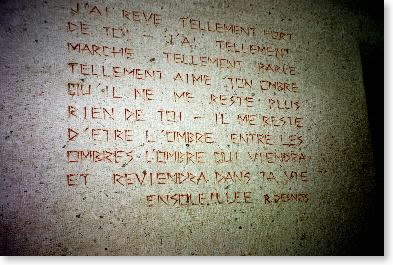 J'AI REVE TELLEMENT FORT
DE TOI - J'AI TELLEMENT
MARCHE - TELLEMENT PARLE
TELLEMENT AIME TON OMBRE
QU'IL NE ME RESTE PLUS
RIEN DE TOI - IL ME RESTE
D'ETRE L'OMBRE ENTRE LES
OMBRES - L'OMBRE QUI VIENDRA
ET REVIENDRA DANS TA VIE
ENSOLEILLEE R.DESNOS